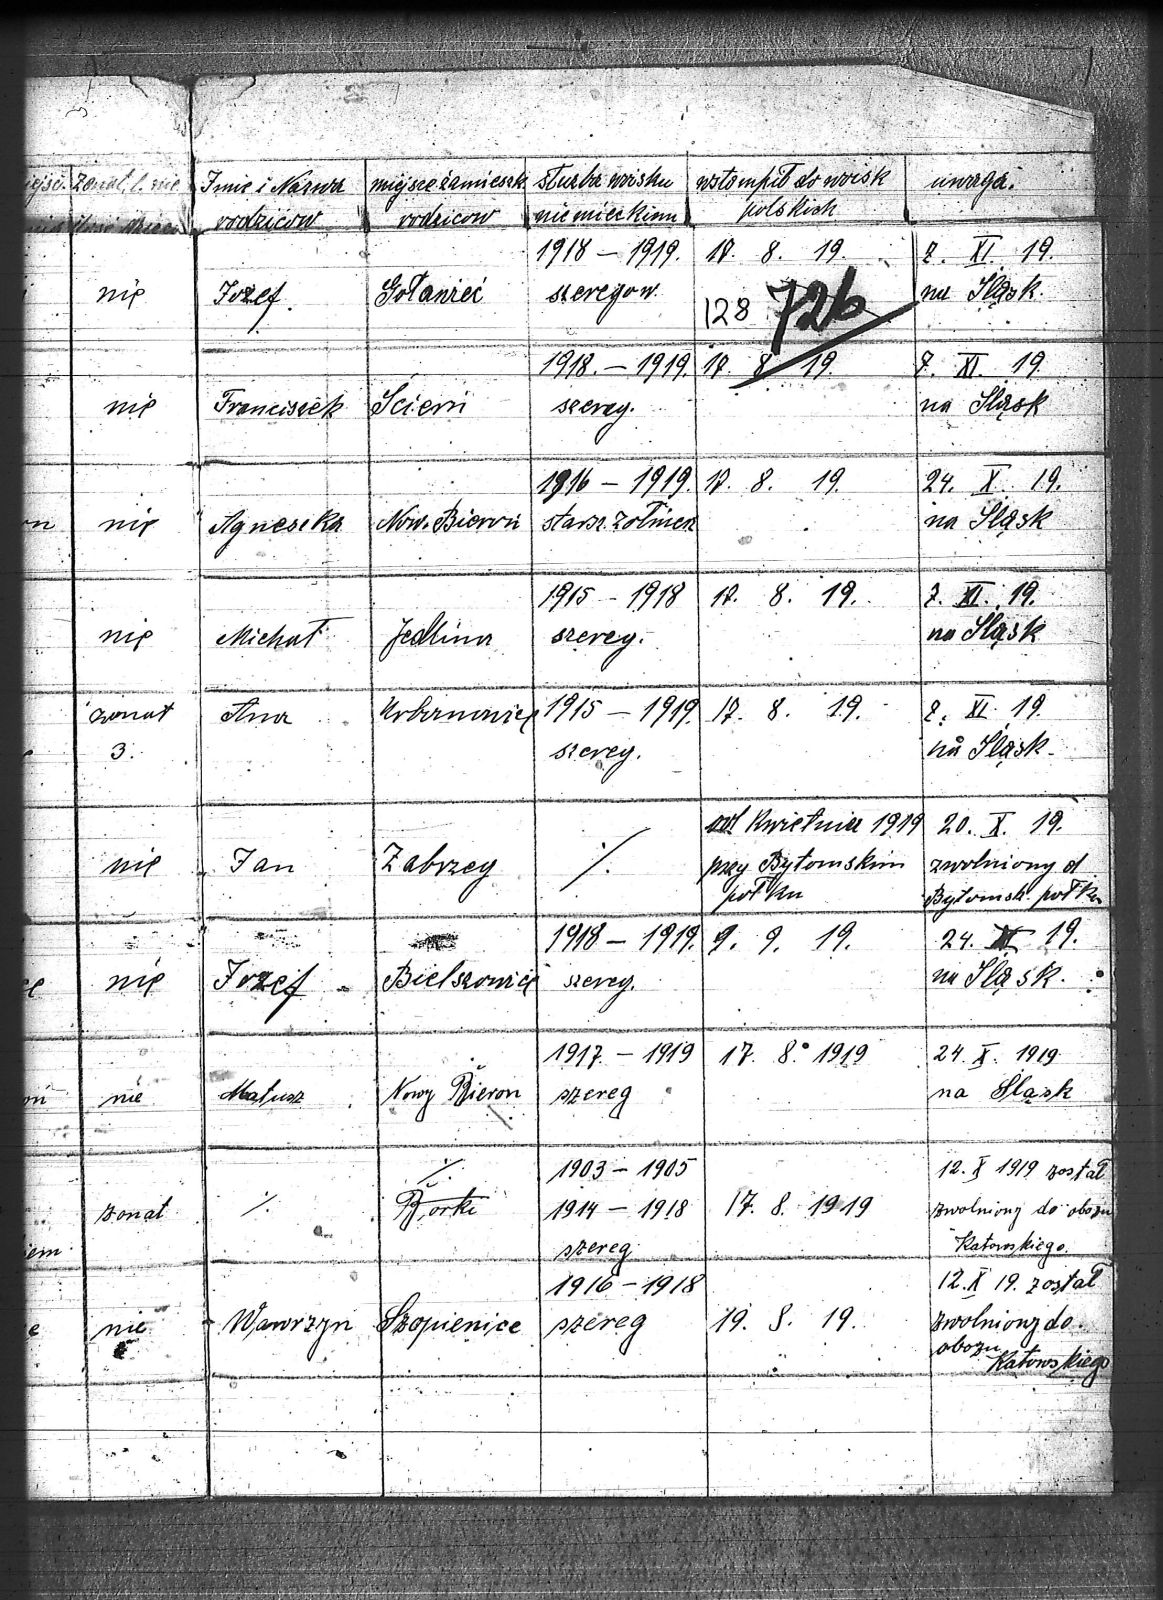 żonat l. nie Imie i Nazwa miejsce zamieszk. służba wojsku wstompił do wojsk uwaga.
rodziców rodziców niemieckim polskich
1918 – 1919. 17. 8. 19. 7. XI. 19.
nie Jozef. Gołaniec szeregow. na Śląsk.
128 726
1918. – 1919. 17. 8 19. 7. XI. 19.
nie Franciszek Ścierni szereg. na Śląsk
1916 – 1919. 17. 8. 19. 24. X. 19.
nie Agneszka Now. Bieroń starsz. żołnierz na Śląsk
1915 – 1918 17. 8. 19. 7. XI. 19.
nie Michał Jedlina szereg. na Śląsk
żonat Ana Urbanowice 1915 – 1919. 17. 8. 19. 7. XI. 19.
3. szereg. na Śląsk.
od Kwietnia 1919 20. X. 19.
nie Jan Zabrzeg ./. przy Bytomskim zwolniony d
połku Bytomsk. połku
1918 – 1919. 9. 9. 19. 24. 19.
nie Jozef Bielszowice szereg. na Śląsk.
1917. – 1919 17. 8. 1919 24. X. 1919
nie Matusz Nowy Bieron szereg na Śląsk
./. 1903 – 1905 12. X 1919 został
żonat ./. Borki 1914 – 1918 17. 8. 1919 zwolniony do obozu
iem szereg Katowskiego.
1916 – 1918 12. X 19. został
nie Wawrzyn Szopienice szereg 19. 8. 19. zwolniony do
obozu
Katowskiego